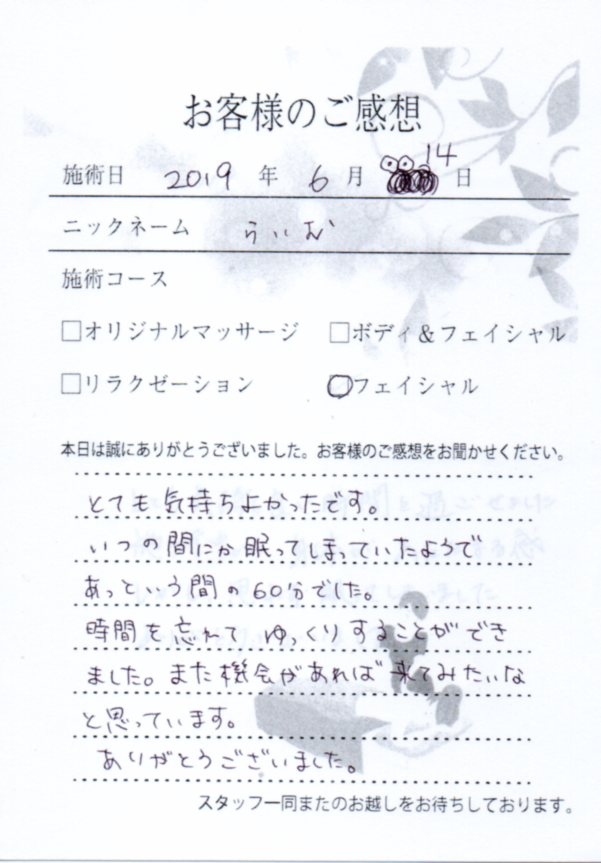 お客様のご感想
施術日 2019 年 6 月 14 日
ニックネーム らいむ
施術コース
□オリジナルマッサージ □ボディ&フェイシャル
□リラクゼーション □フェイシャル
本日は誠にありがとうございました。お客様のご感想をお聞かせください。
とても気持ちよかったです。
いつの間にか眠ってしまっていたようで
あっという間の60分でした。
時間を忘れてゆっくりすることができ
ました。また機会があれば来てみたいな
と思っています。
ありがとうございました。
スタッフ一同またのお越しをお待ちしております。